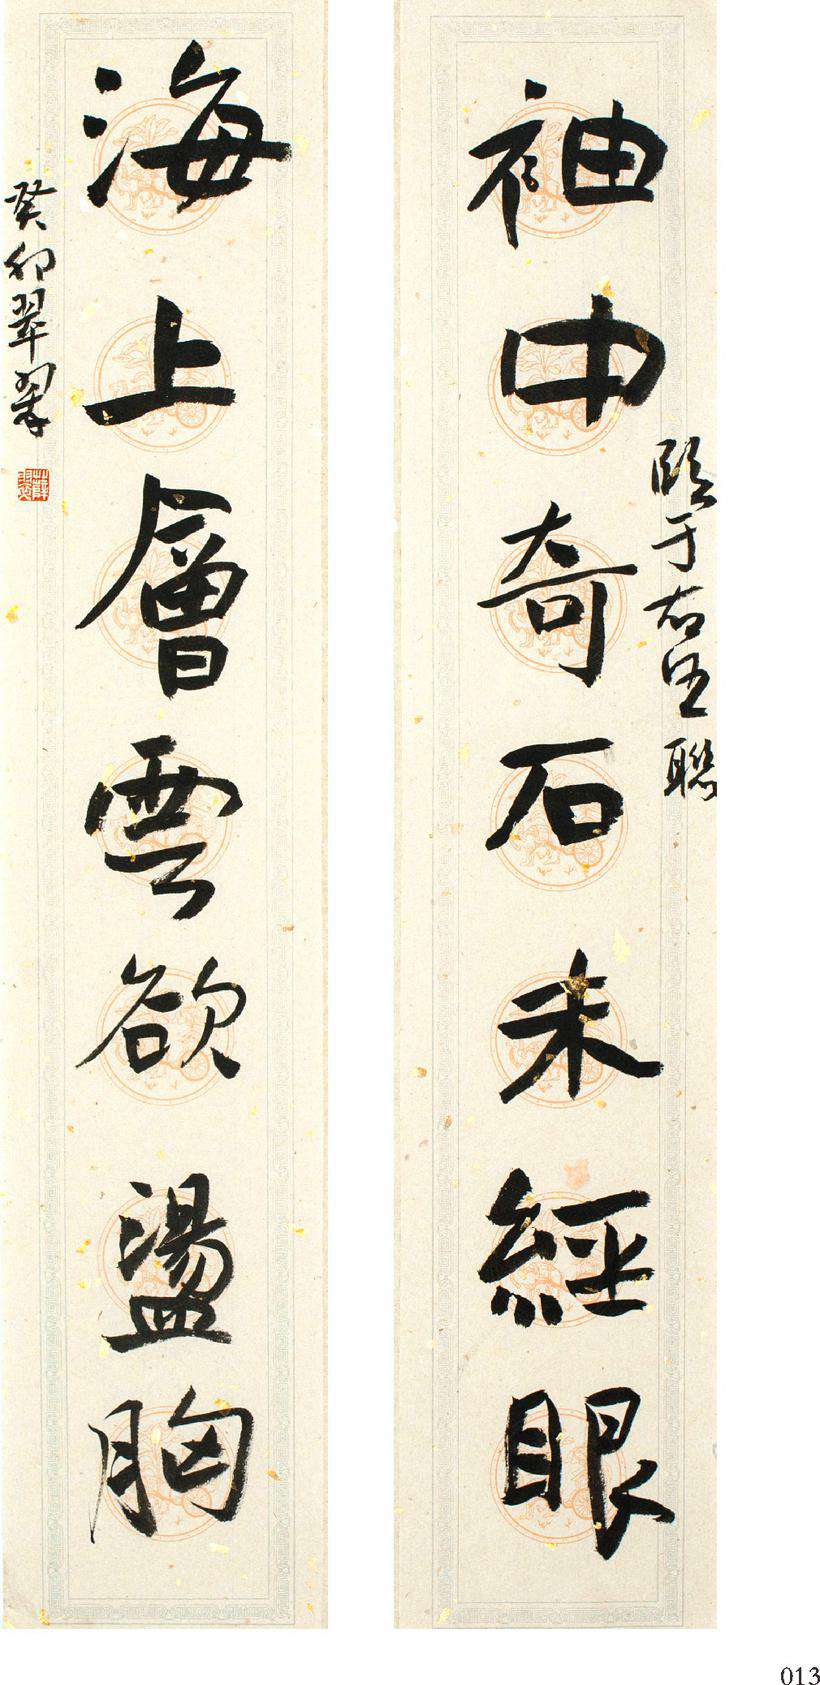 臨于右任聯
袖中奇石未經眼
海上層雲欲盪胸
癸卯翠翠
013